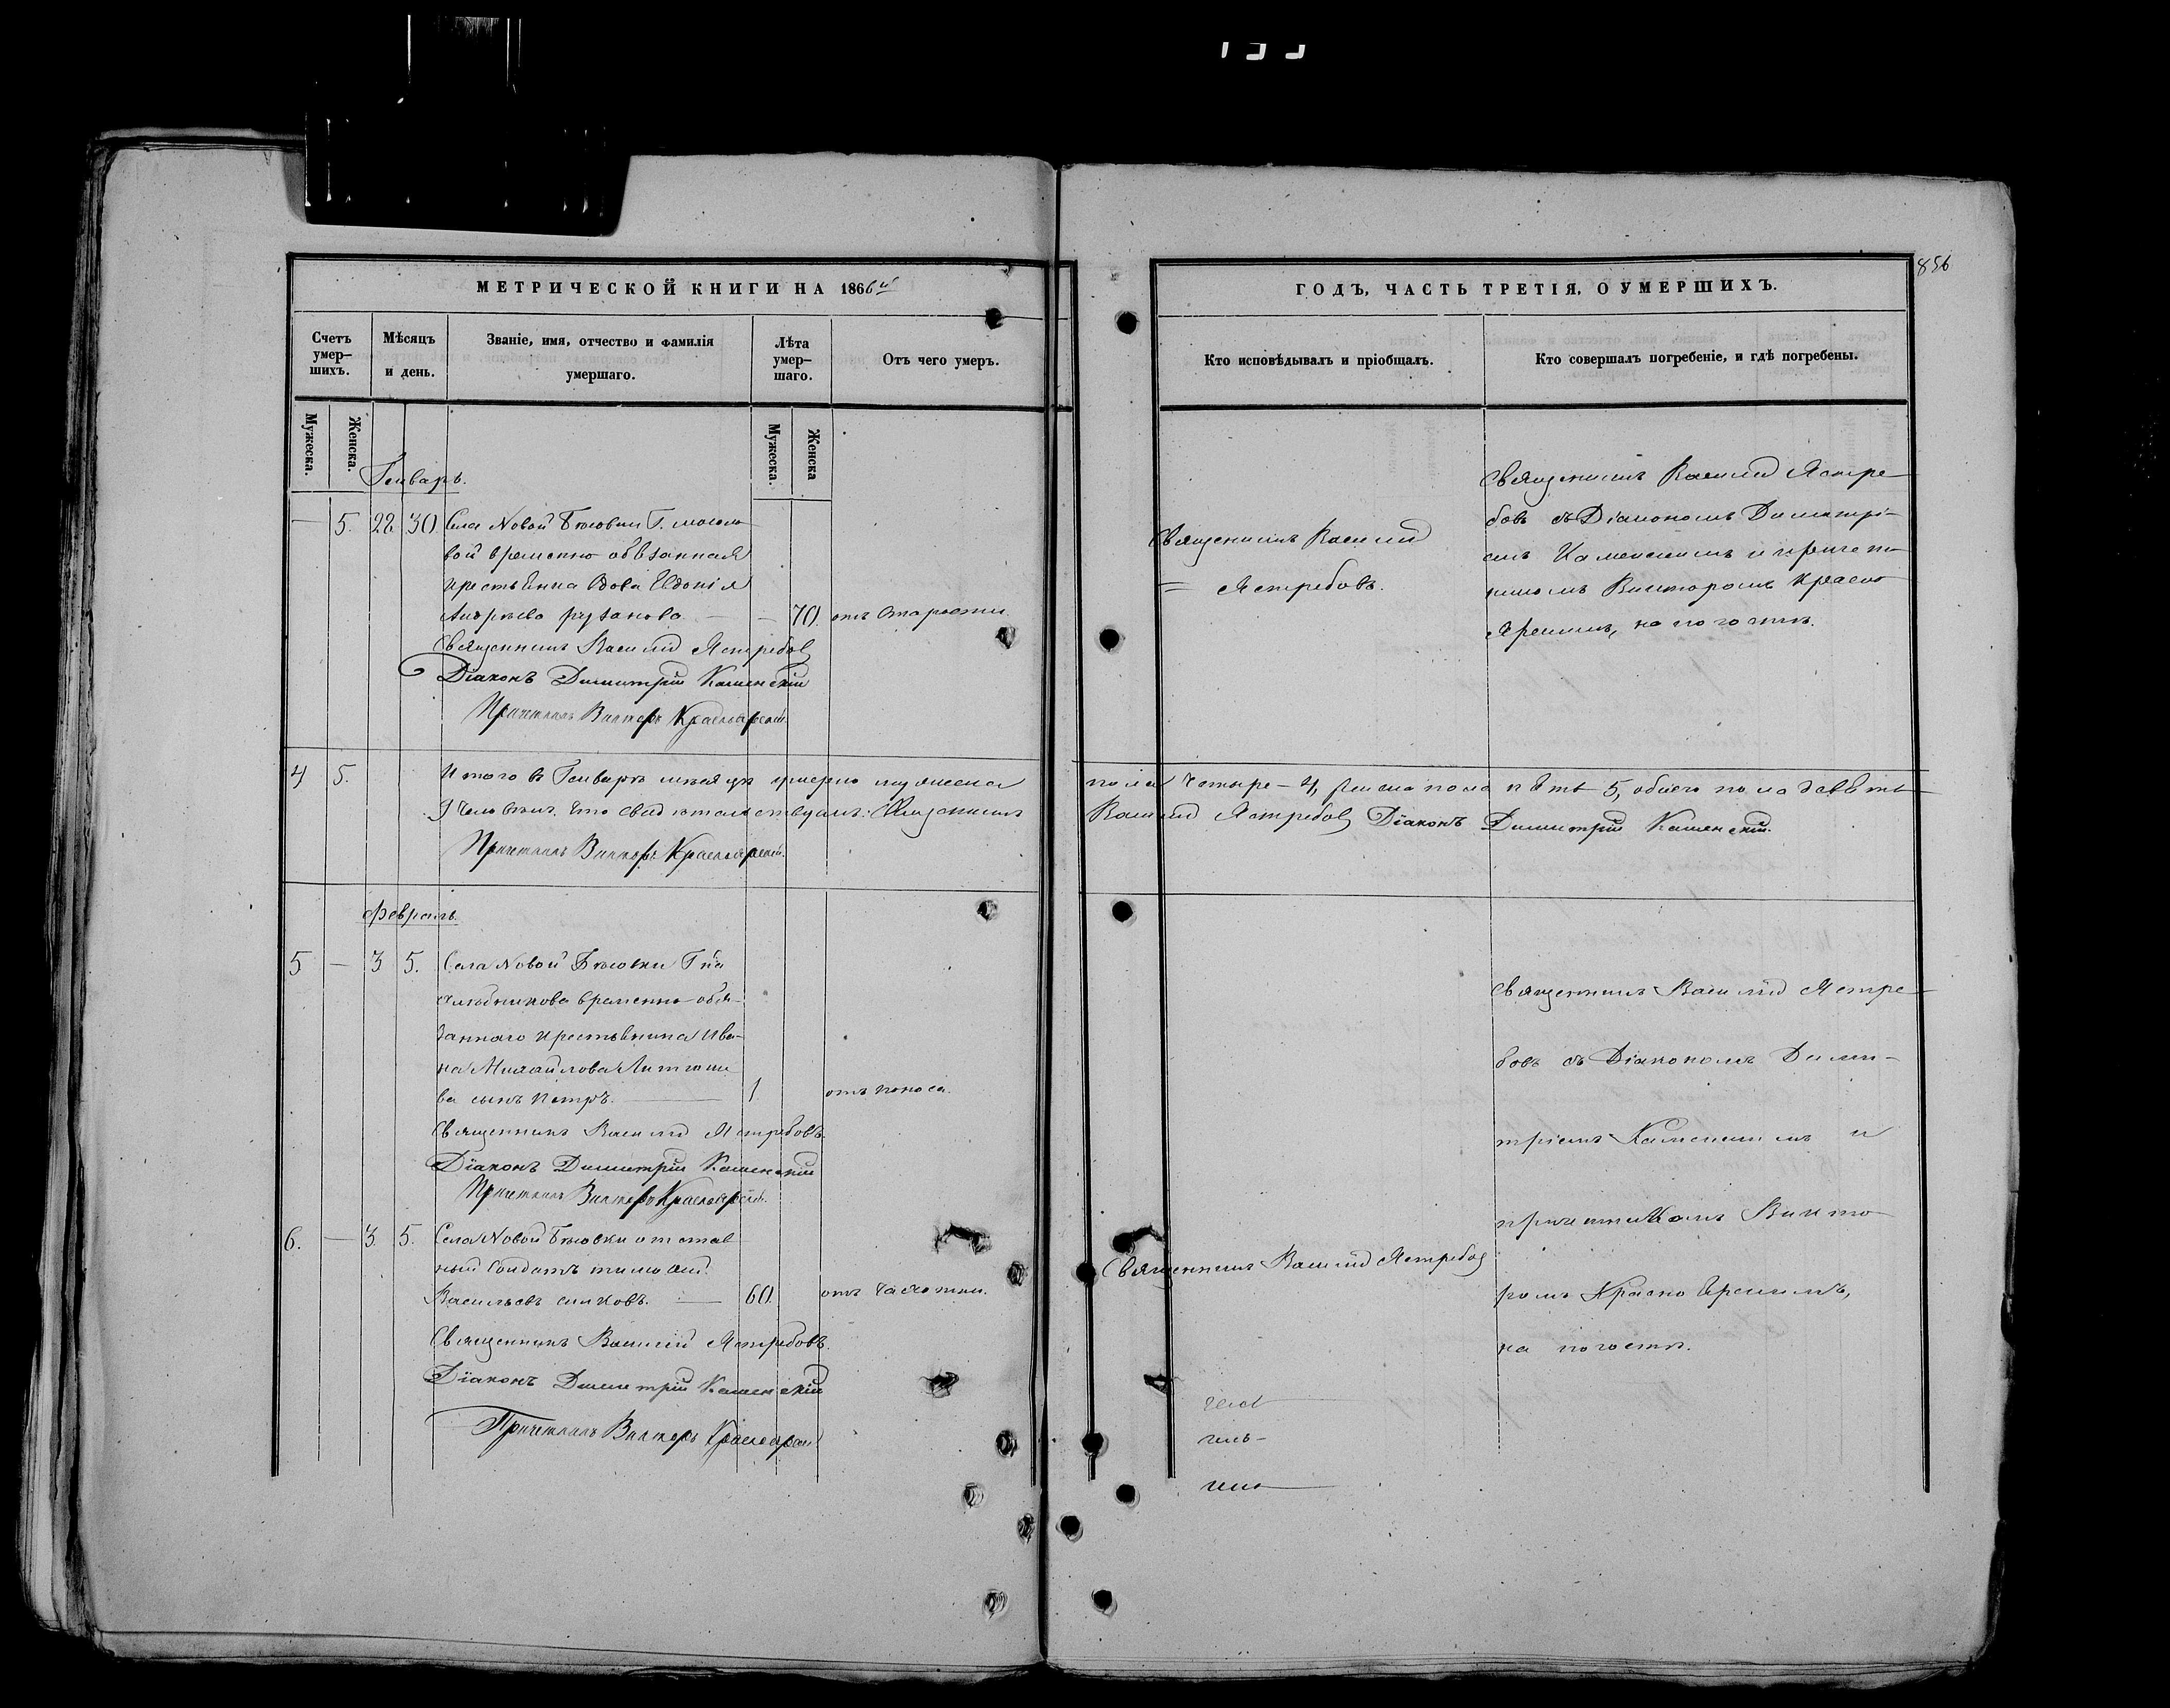 856
МЕТРИЧЕСКОЙ КНИГИ НА 1866й
Счетъ умер-
шихъ.
Мѣсяцъ
и день.
Званіе, имя, отчество и фамилія
умершаго.
Лѣта
умер-
шаго.
Отъ чего умеръ.
Мужеска.
Женска.
Мужеска.
Женска
Генварь.
— 5. 28 30 Села Новой
вой временно обязанная
крестьянка вдова Евдокія
Андреева — — 70. отъ старости.
Священникъ Василій Ястребовъ
Діаконъ Димитрій Каменскій
Причетникъ Викторъ Красноярскій.
4 5. Итого в Генварѣ мѣсяцѣ умерло мужеска
9 человѣкъ. Что свидѣтельствуемъ: Священникъ
Причетникъ Викторъ Красноярскій.
Февраль.
5 — 3 5. Села Новой
временно обя-
заннаго крестьянина Ива-
на Михайлова
ва сынъ Петръ. — 1. отъ поноса.
Священникъ Василій Ястребовъ.
Діаконъ Димитрій Каменскій
Причетникъ Викторъ Красноярскій.
6. — 3. 5. Села Новой отстав
ный солдатъ Тимофей
Васильевъ — 60. отъ чахотки.
Священникъ Василій Ястребовъ.
Діаконъ Димитрій Каменскій
Причетникъ Викторъ Красноярскій
ГОДЪ, ЧАСТЬ ТРЕТІЯ, О УМЕРШИХЪ.
Кто исповѣдывалъ и пріобщалъ.
Кто совершалъ погребеніе, и гдѣ погребены.
Священникъ Василій
Ястребовъ.
Священникъ Василій Ястре-
бовъ съ Діакономъ Димитрі-
емъ Каменскимъ и причет
никомъ Викторомъ Красно
ярскимъ, на погостѣ.
пола четыре — 4, женска пола пять 5, обоего пола девять
Василій Ястребовъ Діаконъ Димитрій Каменскій.
Священникъ Василій Ястре-
бовъ съ Діакономъ Дими-
тріемъ Каменскимъ и
причетникомъ Викто
Священникъ Василій Ястребовъ
ромъ Красно Ярскимъ,
на погостѣ.